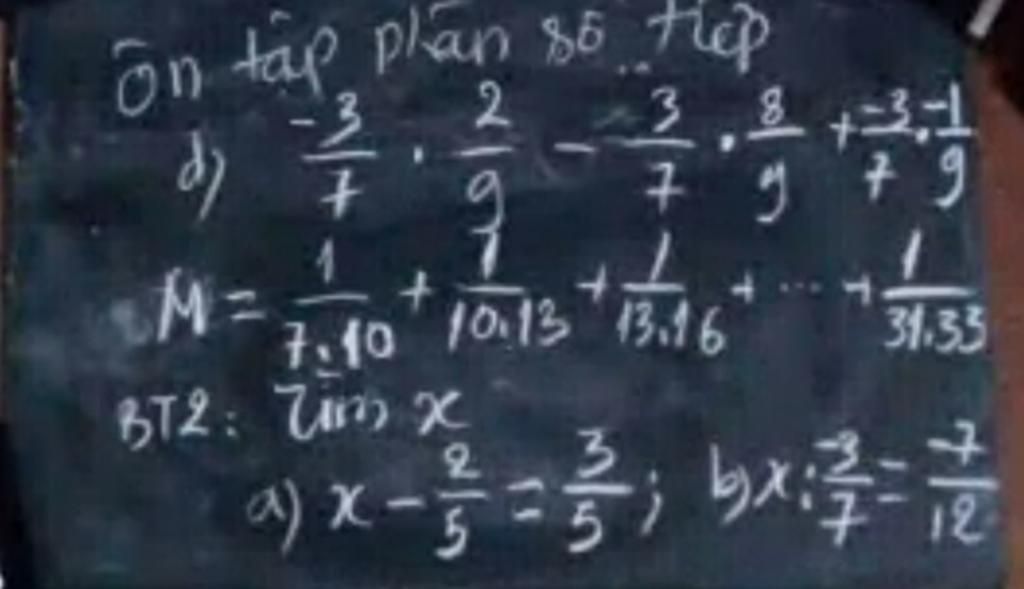 Ôn tập phân số tiếp
d) -3/7 . 2/9 - 3/7 . 8/9 + -3/7 . -1/9
M = 1/7.10 + 1/10.13 + 1/13.16 + ... + 1/31.33
BT2: Tìm x
a) x - 2/5 = 3/5 ; b) x : -3/7 = -7/12